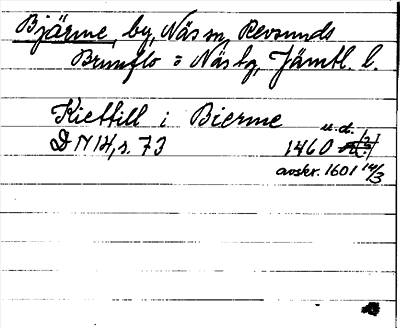 Bjärme, by, Näs sn, Revsunds
Brunflo o Näs tg, Jämtl. l.
Kiettill i Bierme
u.d.
DN 14, s. 73 1460
avskr. 1601 14/3